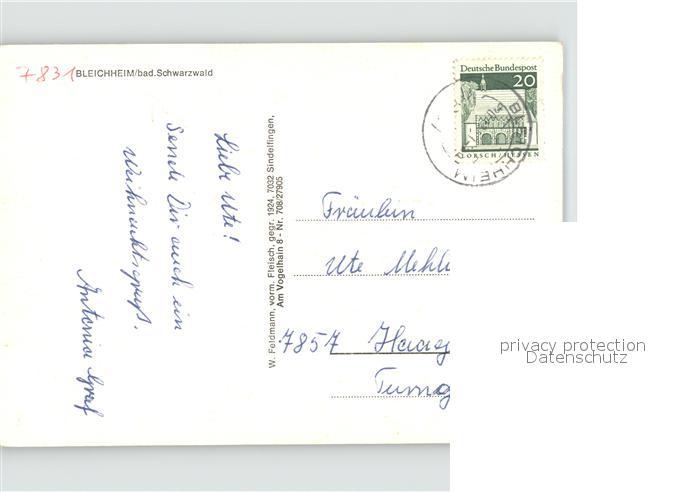 7831 BLEICHHEIM/bad.Schwarzwald
Liebe Ute!
Sende Dir auch ein
Weihnachtsgruß.
Antonia Graf
W. Feldmann, vorm. Fleisch, gegr. 1924, 7032 Sindelfingen,
Am Vogelhain 8 - Nr. 708/27905
Deutsche Bundespost
20
LORSCH/HESSEN
BLEICHHEIM
Fräulein
Ute
7857 Haag
privacy protection
Datenschutz